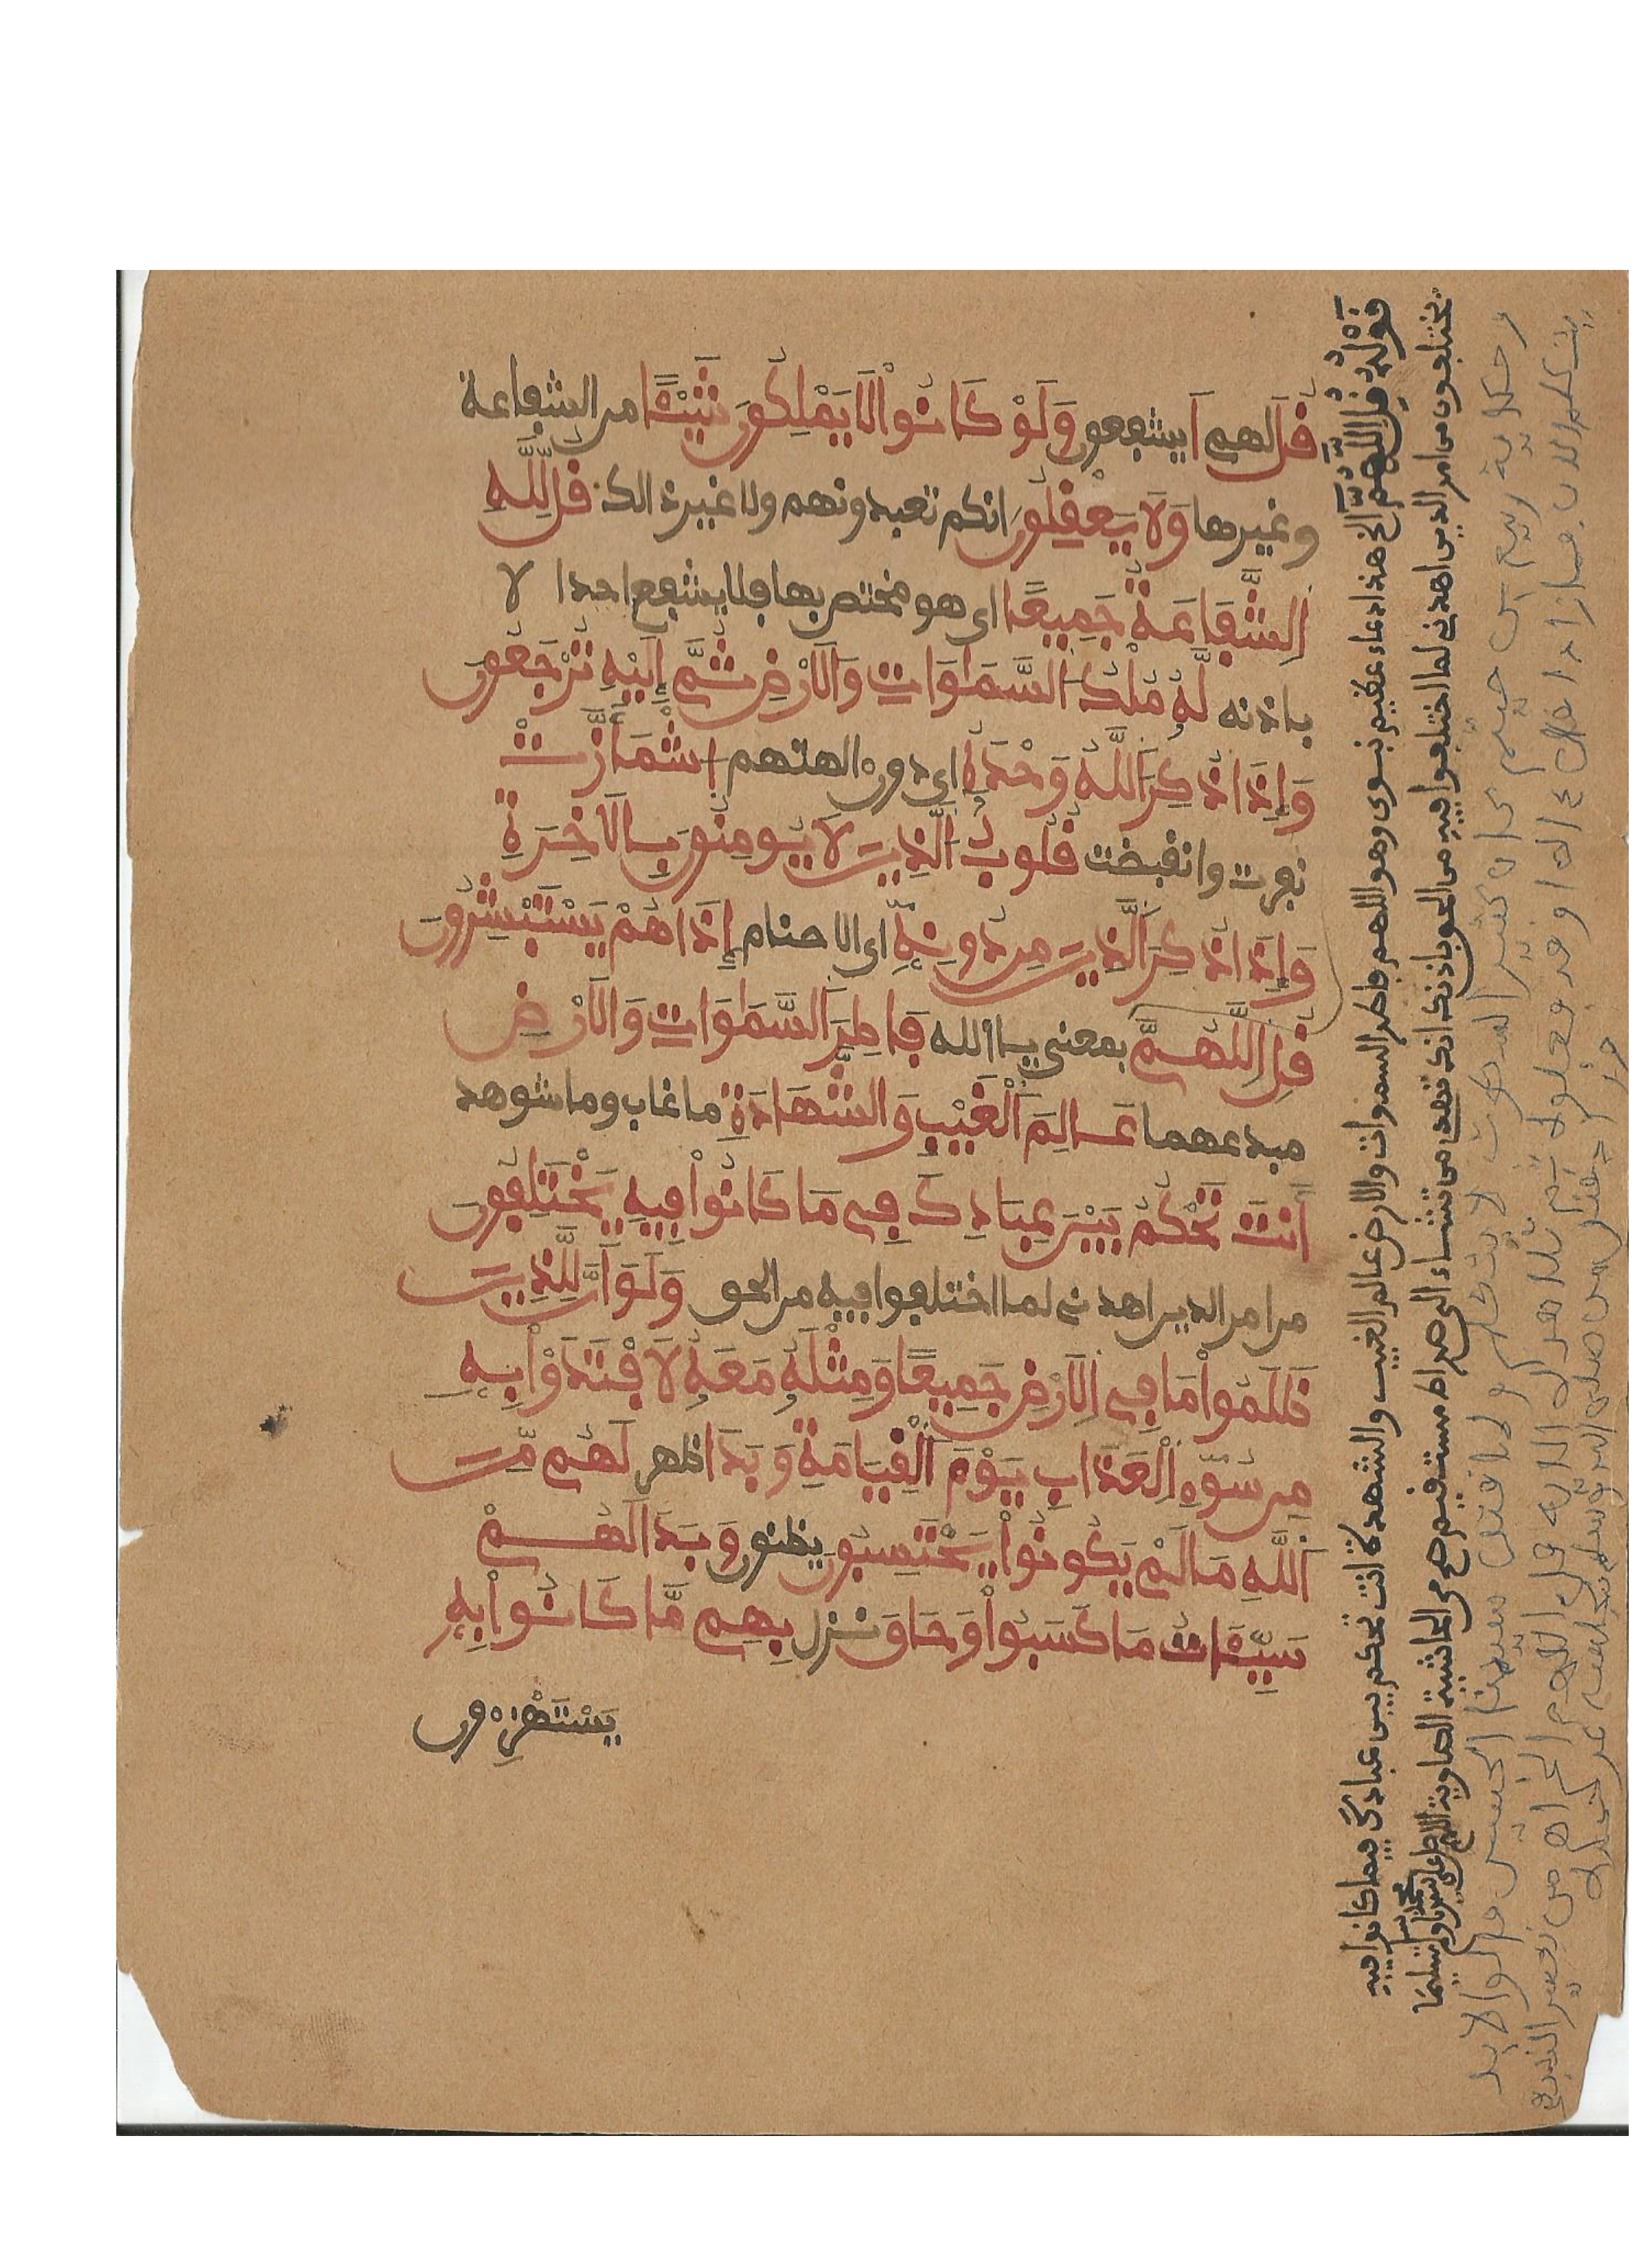 قُل لهم اَ يشفعون وَلَوْ كَانُوا۟ لَا يَمْلِكُونَ شَيْـًٔا من الشفاعة
وغيرها وَلَا يَعْقِلُونَ انكم تعبدونهم ولا غير ذالك قُل لِّلَّهِ
اِ۬لشَّفَاعَةُ جَمِيعًا اى هو مختص بها فلا يشفع احدا لا
باذنه لَهُۥ مُلْكُ اُ۬لسَّمَٰوَٰتِ وَالَارْضِ ثُمَّ إِلَيْهِ تُرْجَعُونَ
وَإِذَا ذُكِرَ اَ۬للَّهُ وَحْدَهُ اى دون الهتهم اِ۪شْمَأَزَّتْ
نفرت وانقبضت قُلُوبُ اُ۬لذِينَ لَا يُومِنُونَ بِالَاخِرَةِ
وَإِذَا ذُكِرَ اَ۬لذِينَ مِن دُونِهِ اى الاصنام إِذَا هُمْ يَسْتَبْشِرُونَ
قُلِ اِ۬للَّهُمَّ بمعنى يا الله فَاطِرَ اَ۬لسَّمَٰوَٰتِ وَالَارْضِ
مبدعهما عَٰلِمَ اَ۬لْغَيْبِ وَالشَّهَٰدَةِ ما غاب وما شوهد
أَنتَ تَحْكُمُ بَيْنَ عِبَادِكَ فِى مَا كَانُوا۟ فِيهِ يَخْتَلِفُونَ
من امر الدين اهدنى لما اختلفوا فيه من الحق وَلَوَ اَنَّ لِلذِينَ
ظَلَمُوا۟ مَا فِى اِ۬لَارْضِ جَمِيعًا وَمِثْلَهُۥ مَعَهُۥ لَافْتَدَوْا۟ بِهِ
مِن سُوٓءِ اِ۬لْعَذَابِ يَوْمَ اَ۬لْقِيَٰمَةِ وَبَدَا ظهر لَهُم مِّنَ
اَ۬للَّهِ مَا لَمْ يَكُونُوا۟ يَحْتَسِبُونَ يظنون وَبَدَا لَهُمْ
سَيِّـَٔاتُ مَا كَسَبُوا۟ وَحَاقَ نزل بِهِم مَّا كَانُوا۟ بِهِ
يَسْتَهْزِءُونَ
قَوْلُهُ قُلِ اللَّهُمَّ الخ هذا دعاء عظيم نبوى وهو اللهم فاطر السموات والارض عالم الغيب والشهدة انت تحكم بين عبادك فيما كانوا فيه
يختلفون من امر الدين اهدنى لما اختلفوا فيه من الحق باذنك انك تهدى من تشاء الى صراط مستقيم صح من الحاشية الصاوية اللهم صل على سيدنا محمد وسلم تسليما
وحكاية ربيع بن خيثم كان كثير السكوت لا يتكلم ولما قتل سيدنا الحسين قالوا لا بد
يتكلم الان